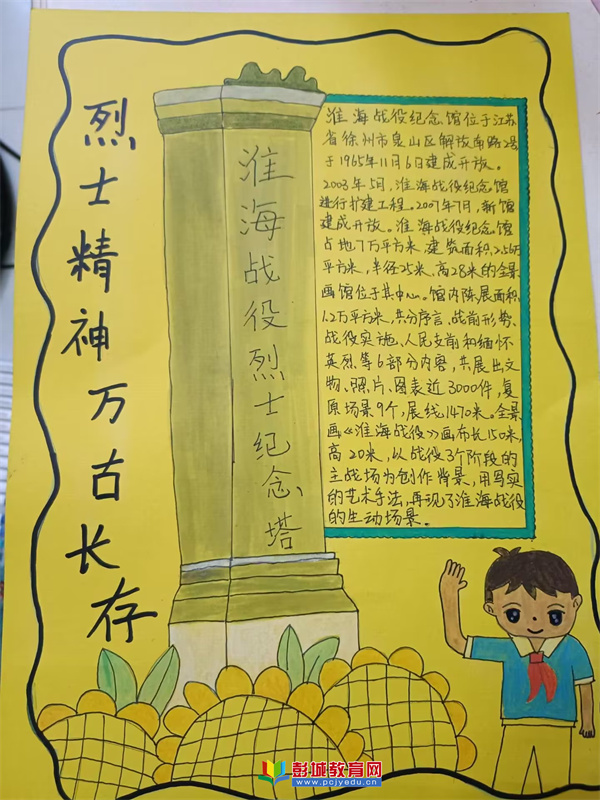 烈士精神万古长存
淮海战役烈士纪念塔
淮海战役纪念馆位于江苏
省徐州市泉山区解放南路2号
于1965年11月6日建成开放。
2003年5月,淮海战役纪念馆
进行扩建工程。2007年7月,新馆
建成开放。淮海战役纪念馆
占地7万平方米,建筑面积2.56万
平方米,半径25米、高28米的全景
画馆位于其中。馆内陈展面积
1.2万平方米,共分序言、战前形势、
战役实施、人民支前和缅怀
英烈等6部分内容,共展出文
物、照片、图表近3000件,复
原场景9个,展线1470米。全景
画《淮海战役》画布长150米,
高20米,以战役3个阶段的
主战场为创作背景,用写实
的艺术手法,再现了淮海战役
的生动场景。
彭城教育网
www.pcjyedu.cn